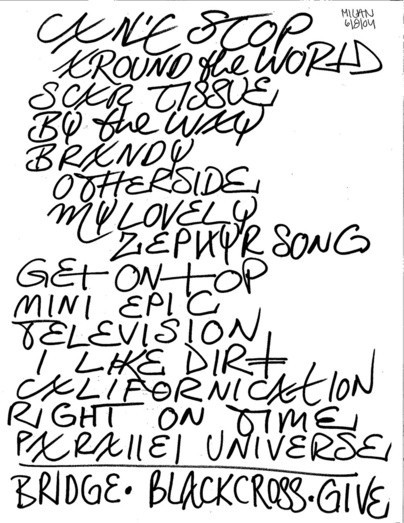 MILAN
6/8/04
CAN'T STOP
AROUND the WORLD
SCAR TISSUE
BY the WAY
BRANDY
OTHERSIDE
MY LOVELY
ZEPHYR SONG
GET ON TOP
MINI EPIC
TELEVISION
I LIKE DIRT
CALIFORNICATION
RIGHT ON TIME
PARALLEL UNIVERSE
BRIDGE • BLACKCROSS • GIVE